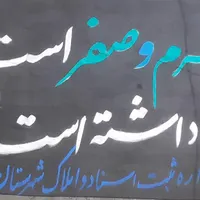 رم و صفر است
داشته است
اره ثبت اسناد و املاک شهرستان